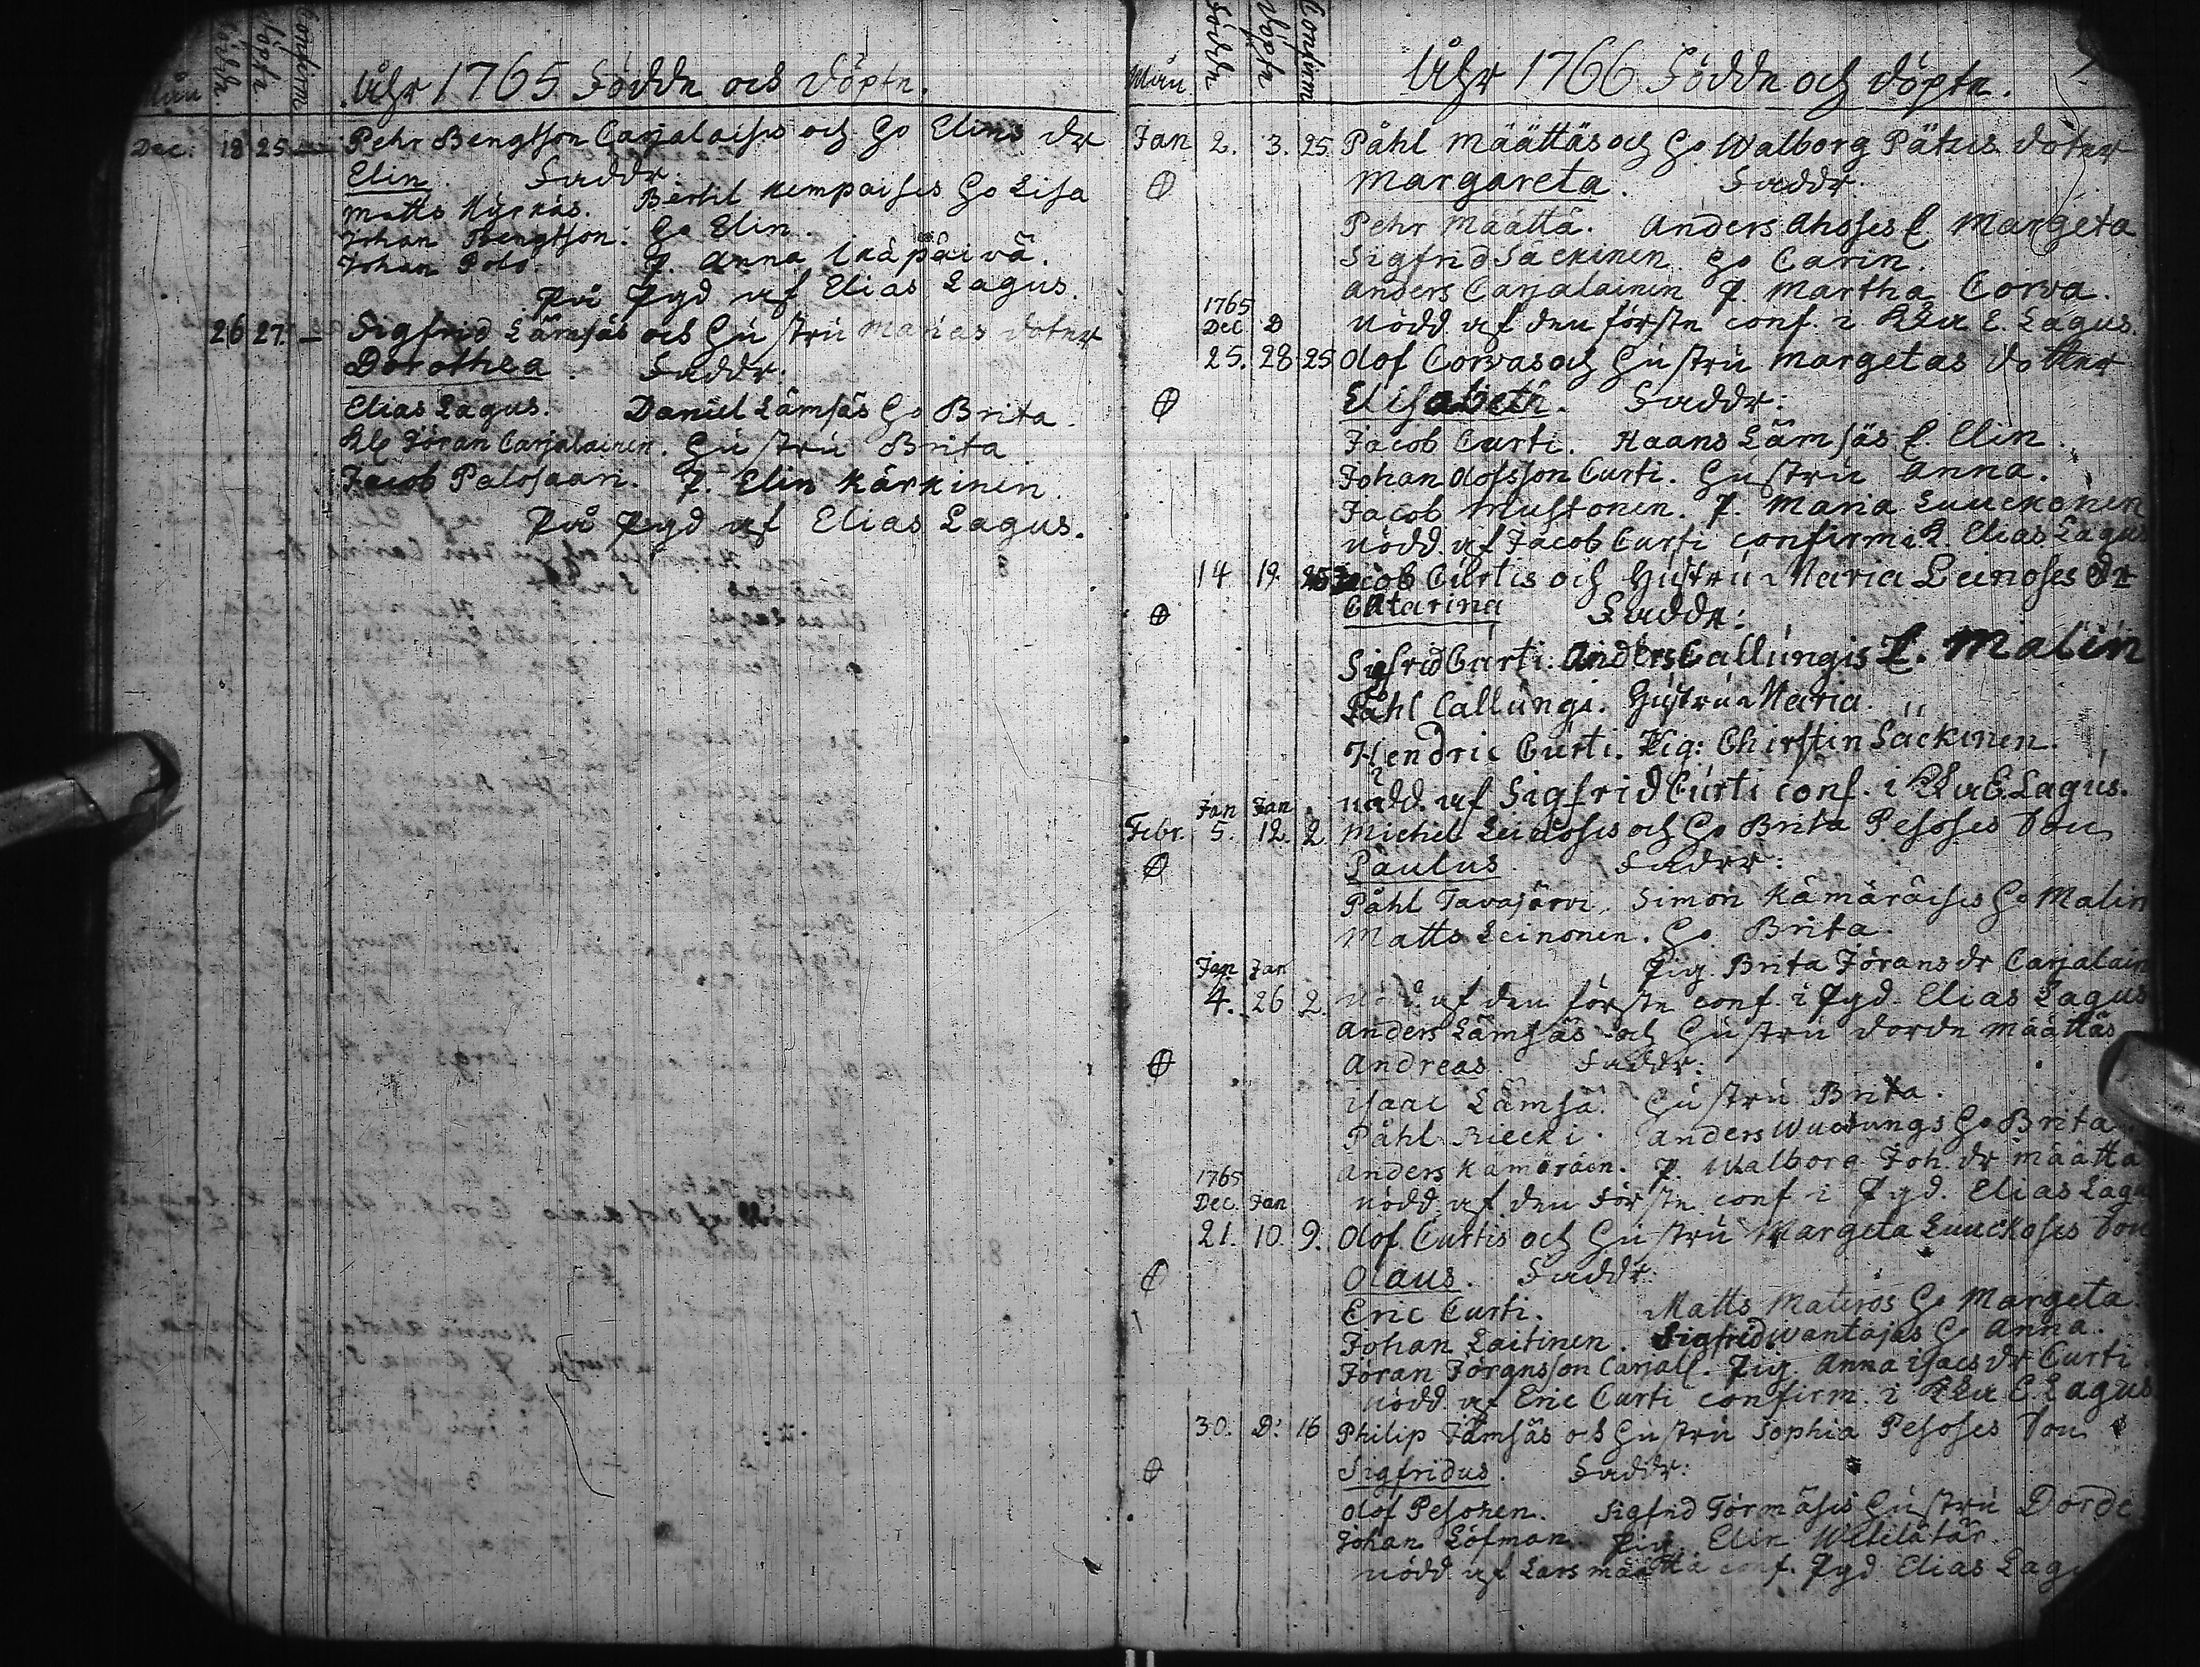 Mån
Födde
Döpte
Confirm
Åhr 1765 Födde och Döpte.
Dec. 18 25 — Pehr Bengtsson Carjalaises och Ho Elins dr
Elin. Faddr:
Matts Kyrkäs. Bertil Kempaises Ho Lisa
Johan Bengtsson. Ho Elin.
Johan Polo. P. Anna Ikäpäivä.
På Pgd af Elias Lagus.
26 27. — Sigfrid Lämsäs och Hustru Marias doter
Dorothea. Faddr:
Elias Lagus. Daniel Lämsäs Ho Brita.
Kl Jöran Carjalainen. Hustru Brita
Jacob Palosaari. P. Elin Kärkinen.
På Pgd af Elias Lagus.
Mån
Födde
Döpte
Confirm
Åhr 1766 Födde och döpte.
Jan 2. 3. 25 Påhl Määttäs och Ho Walborg Pätus doter
Margareta. Faddr.
Pehr Määttä. Anders Ahoses E Margeta
Sigfrid Säckinen Ho Carin.
Anders Carjalainen P. Martha Corva.
1765
Dec D nödd. af den förste conf. i Kka E. Lagus.
25. 28 25 Olof Corvas och Hustru Margetas dotter
Elisabeth. Faddr:
Jacob Curti. Haans Lämsäs E. Elin.
Johan Olofsson Curti. Hustru Anna.
Jacob Mustonen. P. Maria Luuckonen
nödd. af Jacob Curti confirm i K. Elias Lagus
14 19. 25 Jacob Curtis och Hustru Maria Leinoses dr
Catarina Faddr:
Sigfrid Curti. Anders Callungis E. Malin
Påhl Callungi. Hustru Maria.
Hendric Curti. Pig: Chirstin Säckinen.
nödd. af Sigfrid Curti conf. i Kka E. Lagus.
Jan Jan
Febr. 5. 12. 2 Michel Leinoses och Ho Brita Pesoses Son
Paulus Faddr:
Påhl Tavajärvi. Simon Kämäräises Ho Malin
Matts Leinonen. Ho Brita.
Pig. Brita Jörans dr Carjalain
Jan Jan
4. 26 2. nödd. af den förste conf. i Pgd. Elias Lagus
Anders Lämsäs och Hustru Dorde Määttäs
Andreas. Faddr:
Isaac Lämsä. Hustru Brita.
Påhl Riecki. Anders Ho Brita.
Anders Kämäräin. P. Walborg Joh. dr Määttä
1765
Dec. Jan nödd. af den förste conf i Pgd. Elias Lagu
21. 10. 9. Olof Curtis och Hustru Margeta Luuckoses Son
Olaus. Faddr:
Eric Curti. Matts Materos Ho Margeta.
Johan Laitinen. Sigfrid Wantajas Ho Anna.
Jöran Jöransson Carjal. Pig. Anna Isacs dr Curti.
nödd. af Eric Curti confirm. i Kka E. Lagus
30. D: 16 Philip Jämsäs och Hustru Sophia Pesoses Son
Sigfridus. Faddr:
Olof Pesonen. Sigfrid Törmäses Hustru Dorde
Johan Löfman. Pig. Elin
nödd. af Lars Määttä conf. Pgd Elias Lagu